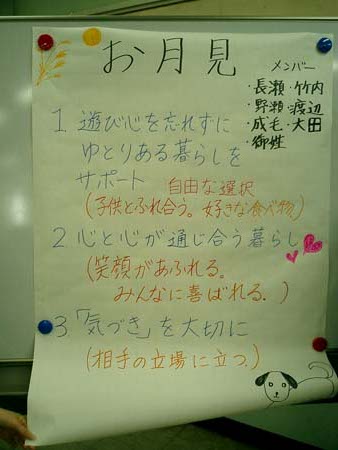 お月見
メンバー
・長瀬・竹内
・野瀬・渡辺
・成毛・大田
・御姓
1 遊び心を忘れずに
ゆとりある暮らしを
サポート 自由な選択
(子供とふれ合う。好きな食べ物)
2 心と心が通じ合う暮らし
(笑顔があふれる。
みんなに喜ばれる。)
3 「気づき」を大切に
(相手の立場に立つ。)